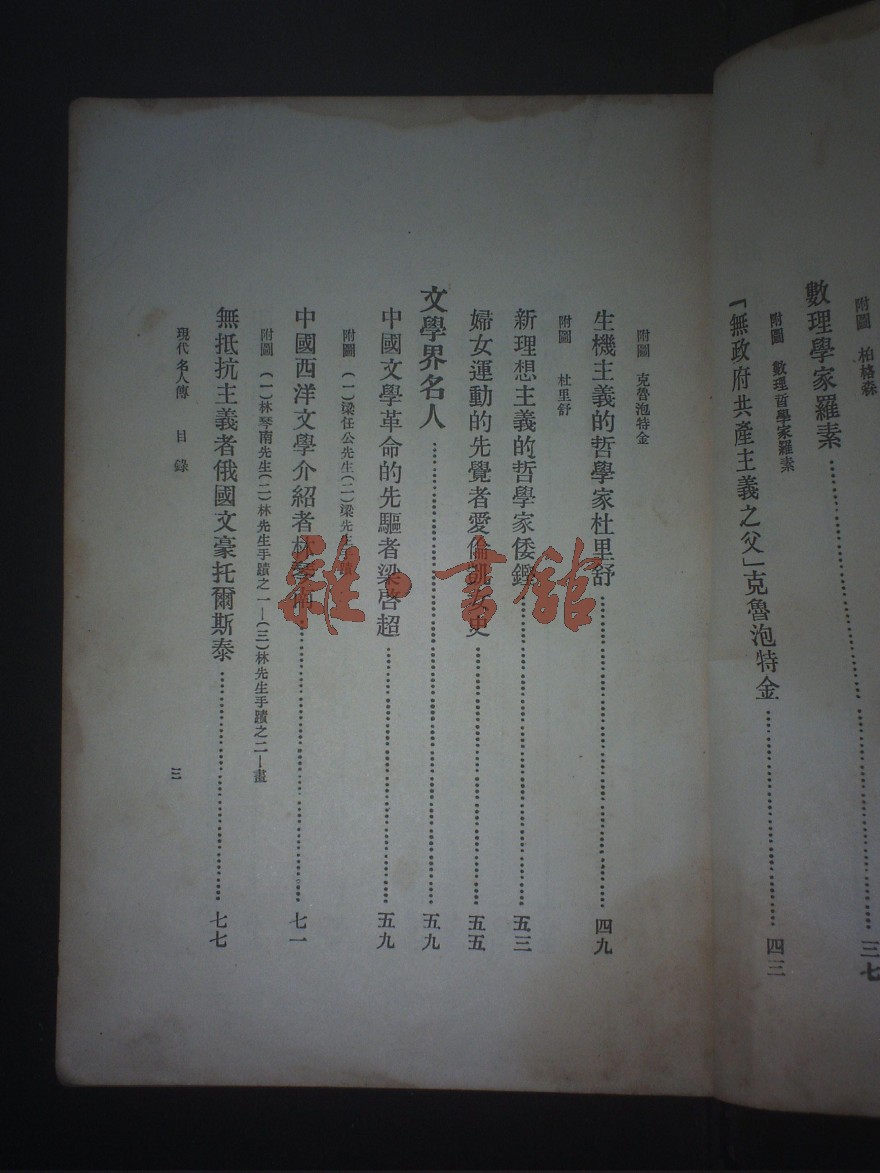 附圖 柏格森
數理學家羅素………三七
附圖 數理哲學家羅素
「無政府共產主義之父」克魯泡特金………四三
附圖 克魯泡特金
生機主義的哲學家杜里舒………四九
附圖 杜里舒
新理想主義的哲學家倭鏗………五三
婦女運動的先覺者愛倫凱女史………五五
文學界名人………五九
中國文學革命的先驅者梁啓超………五九
附圖 (一)梁任公先生(二)梁先生手蹟
中國西洋文學介紹者林琴南………七一
附圖 (一)林琴南先生(二)林先生手蹟之一—(三)林先生手蹟之二—畫
無抵抗主義者俄國文豪托爾斯泰………七七
現代名人傳 目錄
三
雜·書館